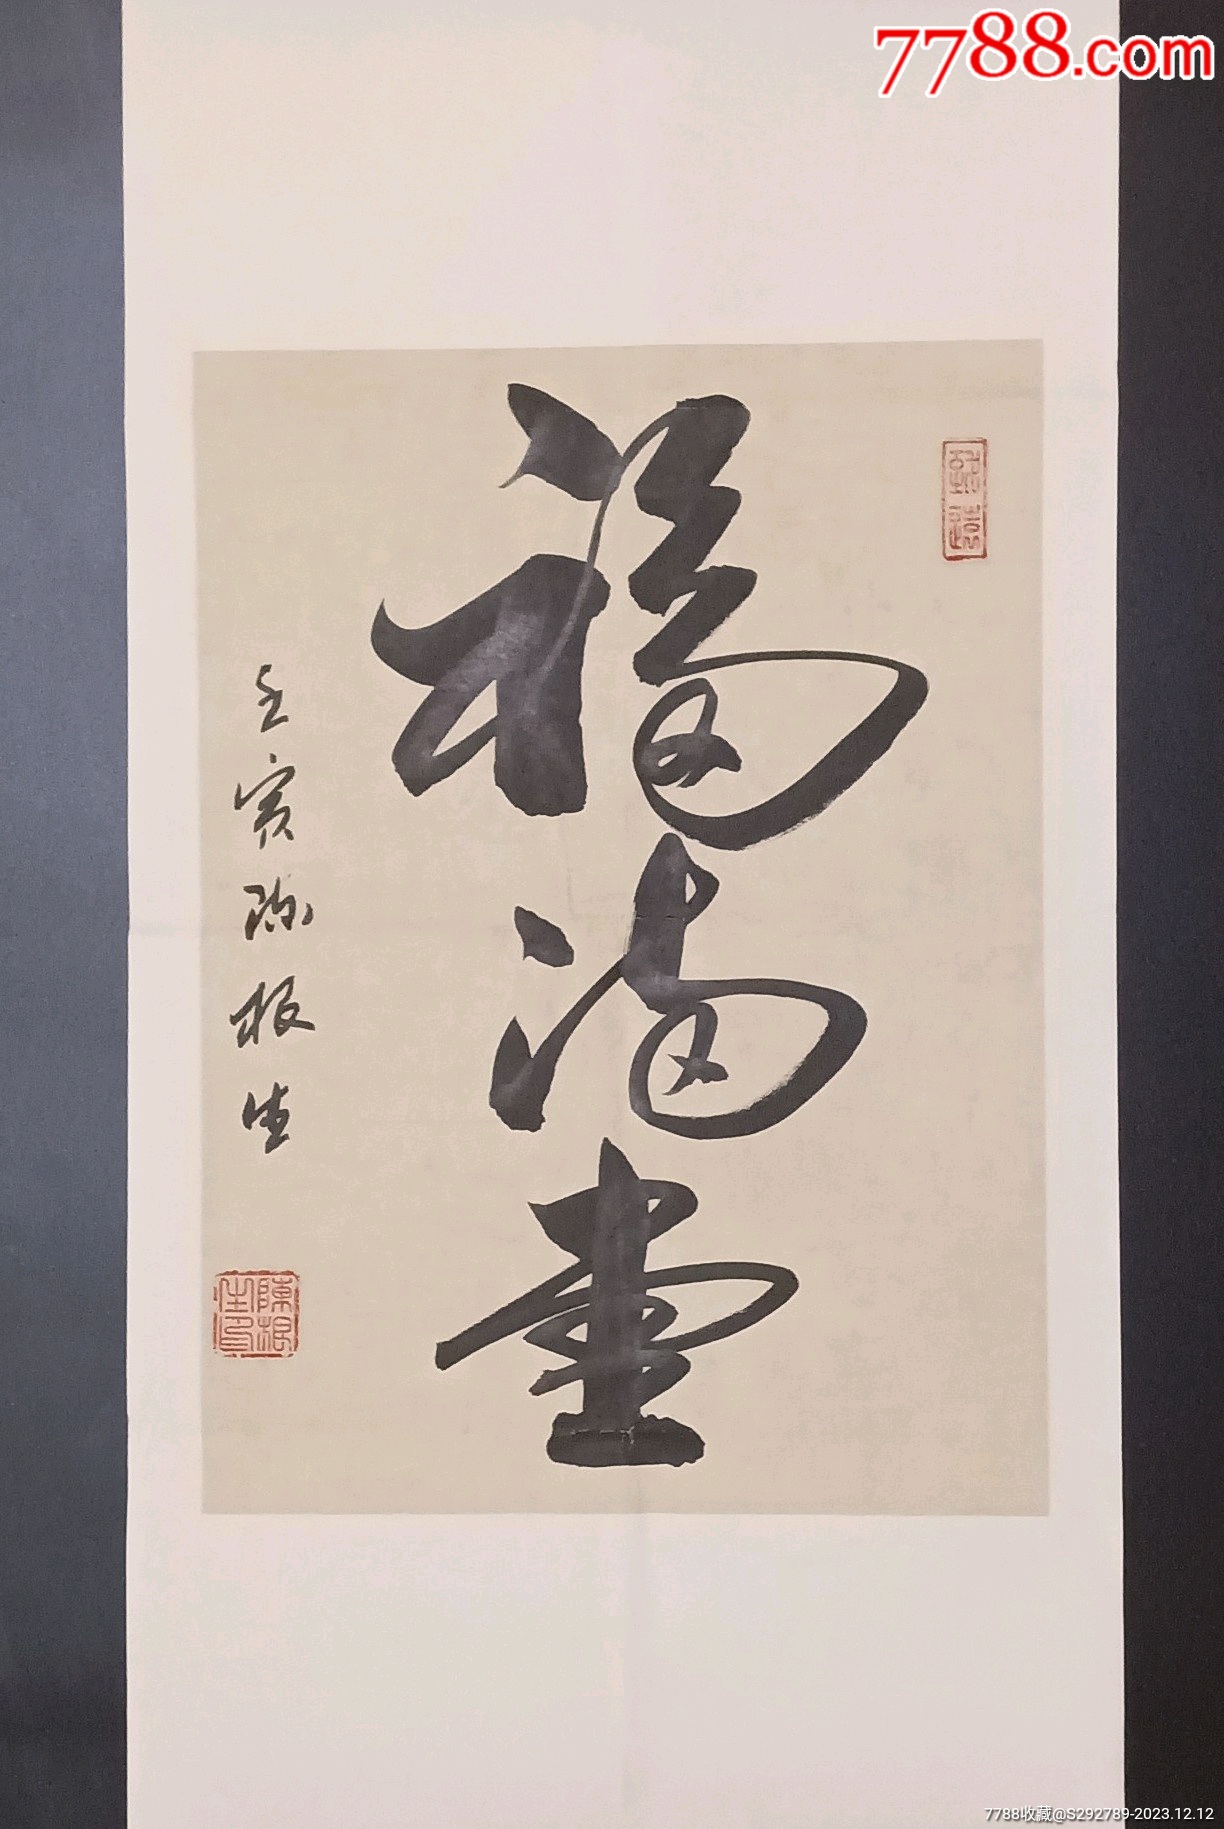 7788.com
福满堂
壬寅陈根生
陳根生印
7788收藏@S292789-2023.12.12